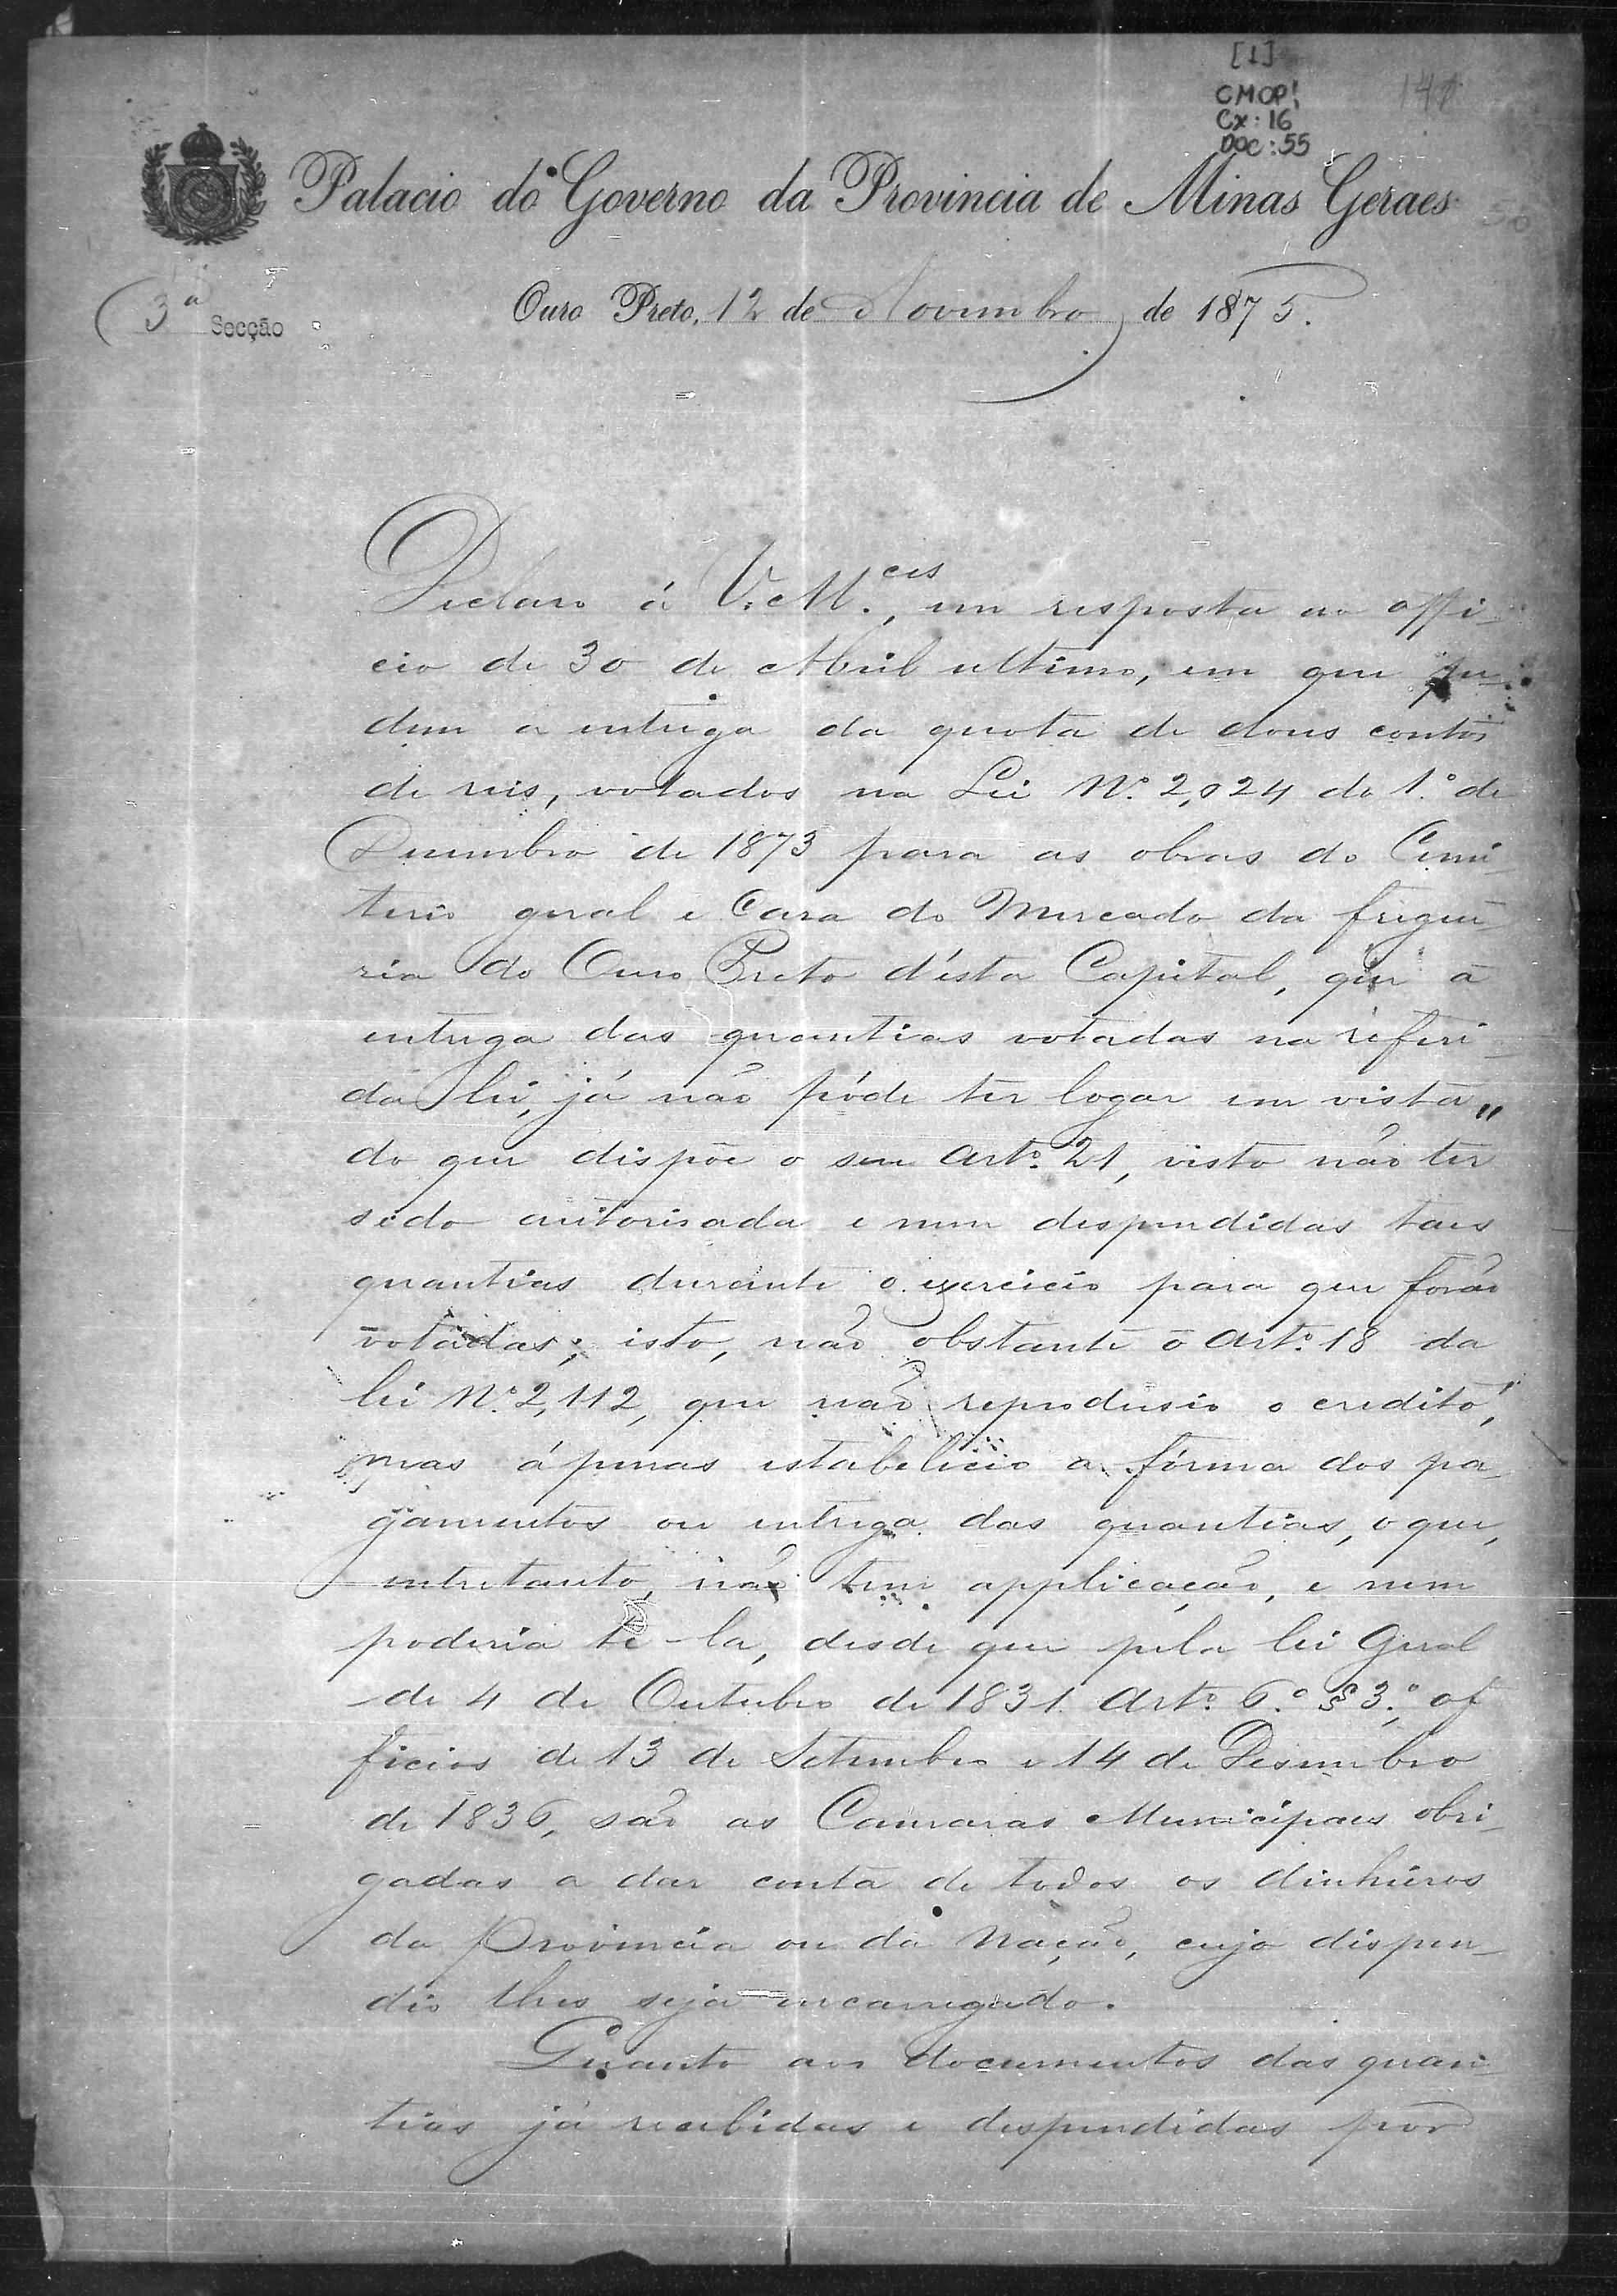 [1]
CMOP!
Cx: 16
DOC: 55
Palacio do Governo da Provincia de Minas Geraes
3ª Secção
Ouro Preto, 12 de Novembro de 1875.
Declaro á V. M.ces, em resposta ao offi-
cio de 30 de Abril ultimo, em que pe-
dem a entrega da quota de dous contos
de reis, votados na Lei Nº 2,024 do 1.º de
Dezembro de 1873 para as obras do Cemi-
terio geral e Casa do Mercado da fregue-
zia do Ouro Preto d'esta Capital, que a
entrega das quantias votadas na referi-
da lei, já não póde ter logar em vista
do que dispõe o seu artº 21, visto não ter
sido autorisada e nem despendidas taes
quantias durante o exercicio para que forão
votadas; isto, não obstante o artº 18 da
lei Nº 2,112, que não reprodusio o credito,
mas ápenas estabeleceo a fórma dos pa-
gamentos ou entrega das quantias, o que,
entretanto, não tem applicação, e nem
poderia te-la, desde que pela lei Geral
de 4 de Outubro de 1831 artº 6.º § 3.º, of
ficios de 13 de Setembro e 14 de Desembro
de 1836, são as Camaras Municipaes obri-
gadas a dar conta de todos os dinheiros
da Provincia ou da Nação, cujo dispen-
dio lhes seja encarregado.
Quanto aos documentos das quan-
tias já recebidas e despendidas por